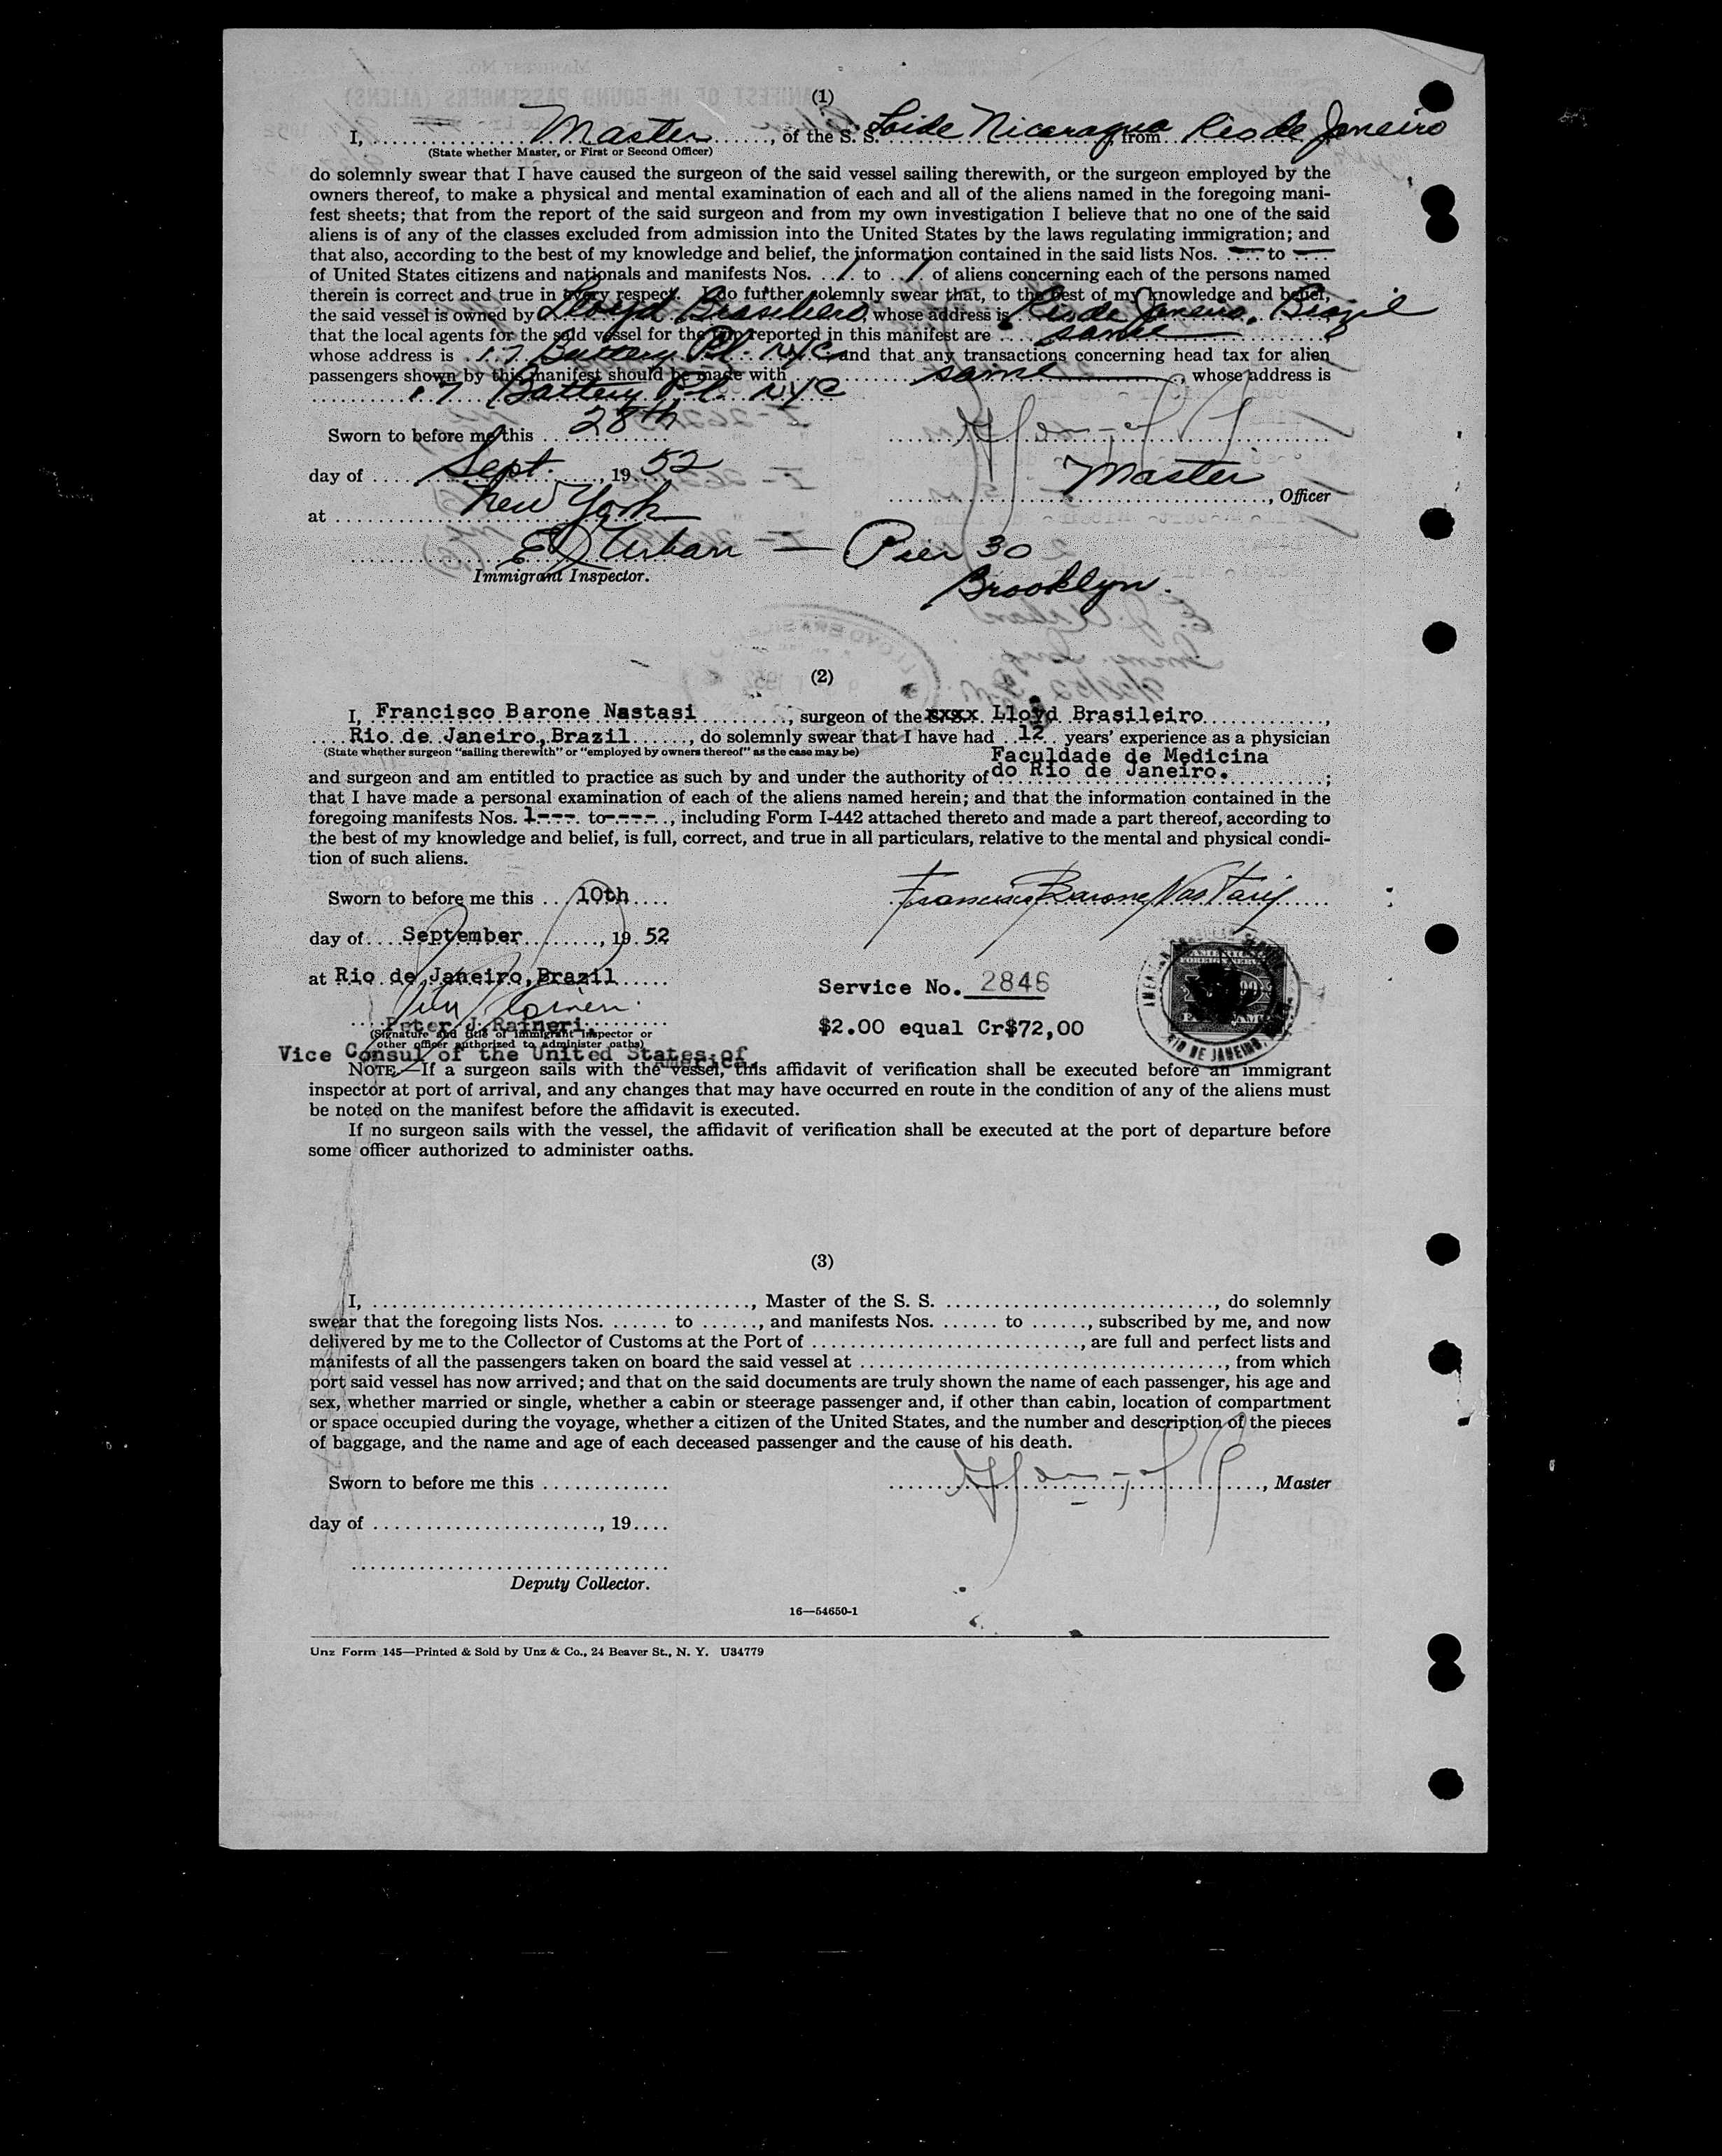 (1)
I, Master, of the S. S. Loide Nicaragua from Rio de Janeiro
(State whether Master, or First or Second Officer)
do solemnly swear that I have caused the surgeon of the said vessel sailing therewith, or the surgeon employed by the
owners thereof, to make a physical and mental examination of each and all of the aliens named in the foregoing mani-
fest sheets; that from the report of the said surgeon and from my own investigation I believe that no one of the said
aliens is of any of the classes excluded from admission into the United States by the laws regulating immigration; and
that also, according to the best of my knowledge and belief, the information contained in the said lists Nos. — to —
of United States citizens and nationals and manifests Nos. 1 to 1 of aliens concerning each of the persons named
therein is correct and true in every respect. I do further solemnly swear that, to the best of my knowledge and belief,
the said vessel is owned by Lloyd Brasileiro, whose address is Rio de Janeiro, Brazil
that the local agents for the said vessel for the trip reported in this manifest are same,
whose address is 17 Battery Pl. NYC and that any transactions concerning head tax for alien
passengers shown by this manifest should be made with same, whose address is
17 Battery Pl. NYC
Sworn to before me this 28th
day of Sept., 19 52
Master, Officer
at New York
Urban — Pier 30
Brooklyn.
Immigrant Inspector.
(2)
I, Francisco Barone Nastasi, surgeon of the xxxx Lloyd Brasileiro,
Rio de Janeiro, Brazil, do solemnly swear that I have had 12 years' experience as a physician
(State whether surgeon "sailing therewith" or "employed by owners thereof" as the case may be)
Faculdade de Medicina
and surgeon and am entitled to practice as such by and under the authority of do Rio de Janeiro.;
that I have made a personal examination of each of the aliens named herein; and that the information contained in the
foregoing manifests Nos. 1---. to----., including Form I-442 attached thereto and made a part thereof, according to
the best of my knowledge and belief, is full, correct, and true in all particulars, relative to the mental and physical condi-
tion of such aliens.
Sworn to before me this 10th
Francisco Barone Nastasi
day of September, 19 52
at Rio de Janeiro, Brazil
Service No. 2846
Peter J. Raineri
$2.00 equal Cr$72,00
RIO DE JANEIRO,
(Signature and title of immigrant inspector or
other officer authorized to administer oaths)
Vice Consul of the United States of
America.
NOTE.—If a surgeon sails with the vessel, this affidavit of verification shall be executed before an immigrant
inspector at port of arrival, and any changes that may have occurred en route in the condition of any of the aliens must
be noted on the manifest before the affidavit is executed.
If no surgeon sails with the vessel, the affidavit of verification shall be executed at the port of departure before
some officer authorized to administer oaths.
(3)
I, ......................................, Master of the S. S. ............................, do solemnly
swear that the foregoing lists Nos. ....... to ......, and manifests Nos. ....... to ......, subscribed by me, and now
delivered by me to the Collector of Customs at the Port of ............................, are full and perfect lists and
manifests of all the passengers taken on board the said vessel at ......................................, from which
port said vessel has now arrived; and that on the said documents are truly shown the name of each passenger, his age and
sex, whether married or single, whether a cabin or steerage passenger and, if other than cabin, location of compartment
or space occupied during the voyage, whether a citizen of the United States, and the number and description of the pieces
of baggage, and the name and age of each deceased passenger and the cause of his death.
Sworn to before me this .............
......................................, Master
day of ........................, 19....
Deputy Collector.
16—54650-1
Unz Form 145—Printed & Sold by Unz & Co., 24 Beaver St., N. Y. U34779